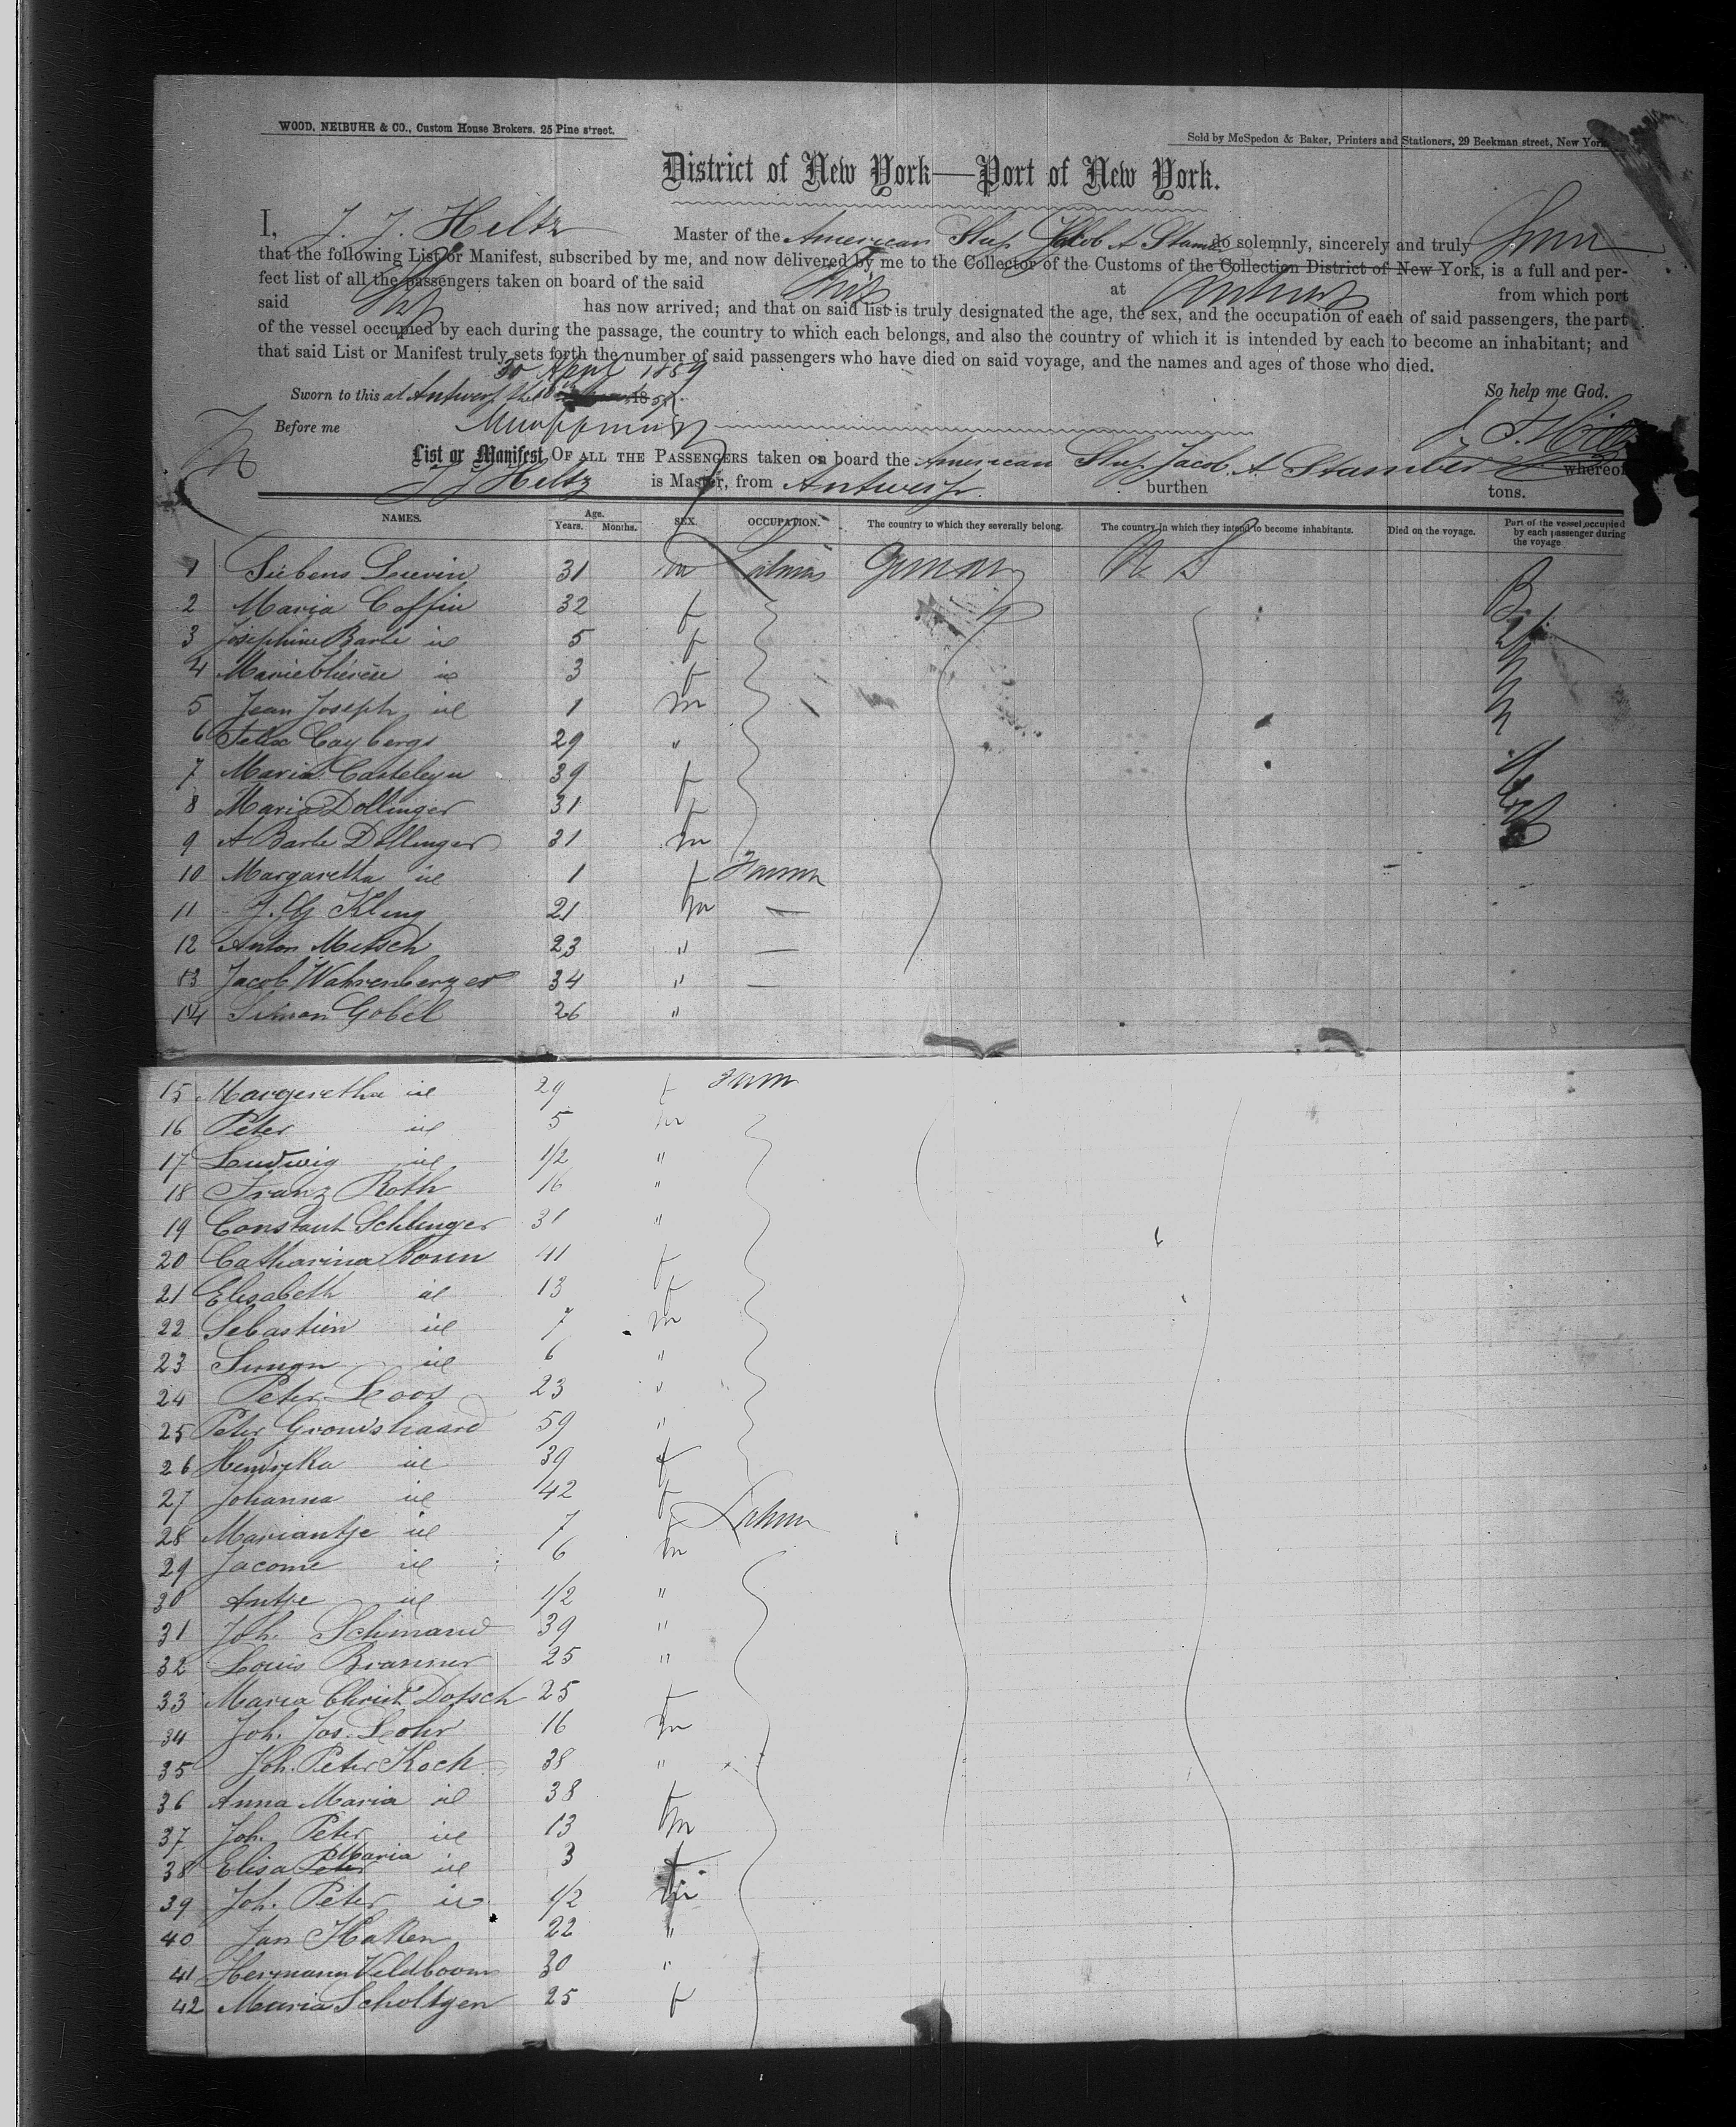 WOOD, NEIBUHR & CO., Custom House Brokers, 25 Pine street.
Sold by McSpedon & Baker, Printers and Stationers, 29 Beekman street, New York.
District of New York—Port of New York.
I, J. J. Heltz Master of the American Ship Jacob A Stamler do solemnly, sincerely and truly
that the following List or Manifest, subscribed by me, and now delivered by me to the Collector of the Customs of the Collection District of New York, is a full and per-
fect list of all the passengers taken on board of the said Ship at Antwerp from which port
said Ship has now arrived; and that on said list is truly designated the age, the sex, and the occupation of each of said passengers, the part
of the vessel occupied by each during the passage, the country to which each belongs, and also the country of which it is intended by each to become an inhabitant; and
that said List or Manifest truly sets forth the number of said passengers who have died on said voyage, and the names and ages of those who died.
30 April 1859
Sworn to this at Antwerp the 185 So help me God.
Before me
List or Manifest OF ALL THE PASSENGERS taken on board the American Ship Jacob A Stamler whereof
J J Heltz is Master, from Antwerp burthen tons.
NAMES. Age. Years. Months. SEX. OCCUPATION. The country to which they severally belong. The country in which they intend to become inhabitants. Died on the voyage. Part of the vessel occupied by each passenger during the voyage
1 Siebens Lievin 31 m German U S
2 Maria Coffin 32 f
3 Josephine Barbe id 5 f
4 Marie thérèse id 3 f
5 Jean Joseph id 1 m
6 Felix Caybergs 29 "
7 Maria Casteleyn 39 f
8 Maria Dollinger 31 f
9 A Barbe Dollinger 31 m
10 Margaretha id 1 f Farmer
11 J. G Kling 21 m —
12 Anton Metsch 23 " —
13 Jacob Wahrenberger 34 " —
14 Simon Gobel 26 "
15 Margeretha id 29 f Farm
16 Peter id 5 m
17 Ludwig id 1/2 "
18 Franz Roth 16 "
19 Constant Schlinger 31 "
20 Catharina Bonn 41 f
21 Elisabeth id 13 f
22 Sebastien id 7 m
23 Simon id 6 "
24 Peter Loos 23 "
25 Peter 59 "
26 Hendrika id 39 f
27 Johanna id 42 f
28 Mariantje id 7 f
29 Jacome id 6 m
30 Antje id 1/2 "
31 Joh. 39 "
32 Louis Branner 25 "
33 Maria Christ Dotsch 25 f
34 Joh. Jos. Lohr 16 m
35 Joh. Peter Koch 38 "
36 Anna Maria id 38 f
37 Joh. Peter id 13 m
38 Elisa Peter Maria id 3 f
39 Joh. Peter id 1/2 m
40 Jan Haken 22 "
41 Hermann Veldboom 30 "
42 Maria Scholtgen 25 f